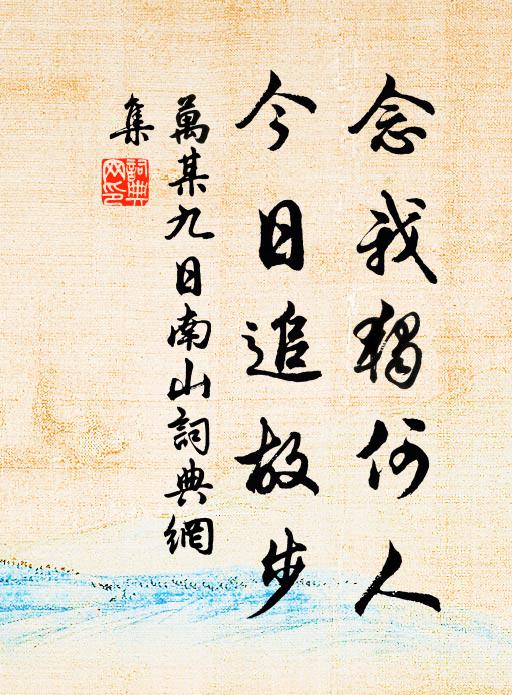 念我獨何人
今日追故步
萬某九日南山詞典網
集
詞典網印